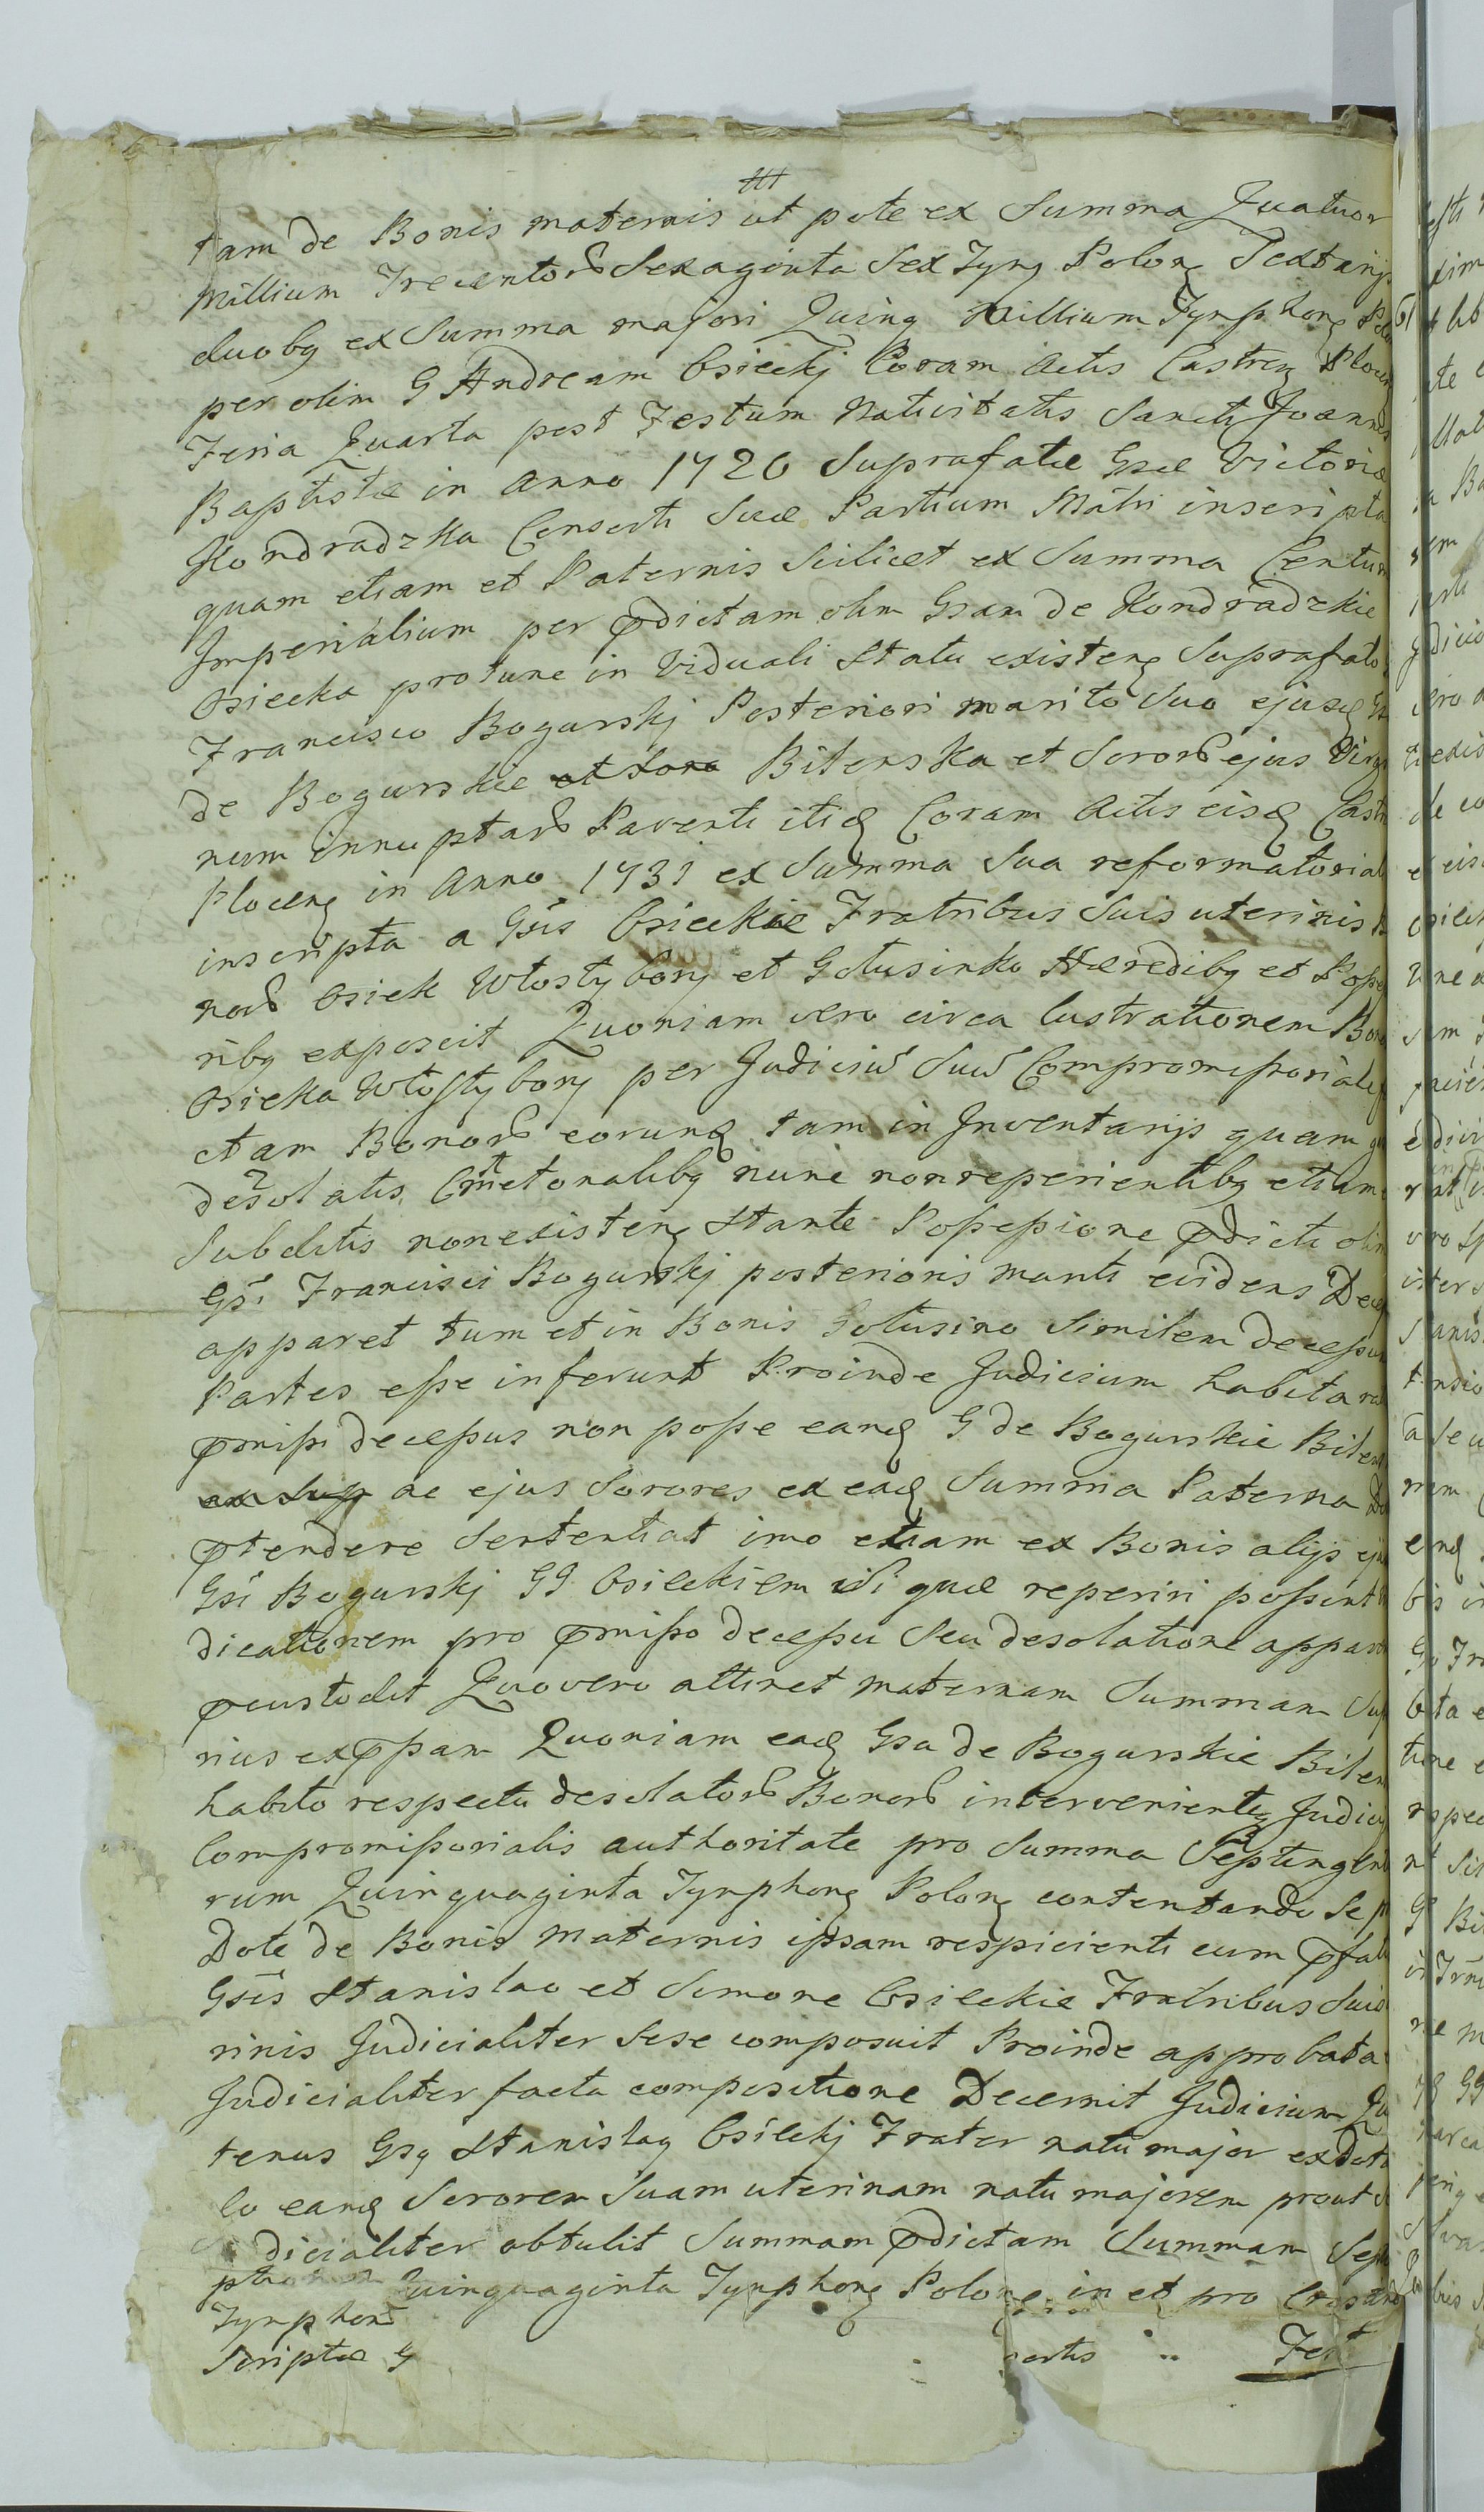 tam de Bonis maternis ut pote ex Summa Quatuor
Millium Trecentorꝝ Sexaginta Sex Tynꝭ Polonꝭ Sextarijs
duobꝫ ex Summa majori Quinꝗ Millium Tynphonꝭ Pol
per olim G Andream Osieckj Coram Actis Castrenꝭ Plocen
Feria Quarta post Festum Nativitatis Sancti Joannis
Baptistæ in Anno 1720 Suprafatæ Gsæ Victoriæ
Kondradzka Consorti Suæ Partium Matri inscripta
quam etiam et Paternis Scilicet ex Summa Centum
Imperialium per p̄dictam olim Gsam de Kondradzkie
Osiecka protunc in Viduali Statu existenꝭ Suprafato
Francisco Bogurskj Posteriori marito Suo ejusdꝭ Gs
de Bogurskie et Soro Biterska et Sororꝝ ejus Virgi
num innuptarꝝ Parenti itidꝭ Coram Actis eisdꝭ Castr
Plocenꝭ in Anno 1731 ex Summa Sua reformatoriali
inscripta a Gsis Osieckie Fratribus Suis uterinis B
norꝝ Osiek Włostybory et Gołusinko Hæredibꝫ et Posse
ribꝫ exposcit Quoniam vero circa lustrationem Bono
Osieka Włostybory per Judiciū Suū Compromissoriale
ctam Bonorꝝ eorundꝭ tam in Inventarijs quam
desolatis Cmetonalibꝫ nunc non reperientibꝫ etiam
Subditis non existenꝭ Stante Possessione p̄dicti olim
Gsi Francisci Bogurskj posterioris mariti evidens Dec
apparet tum et in Bonis Gołusino Similem decessum
Partes esse inferunt Proinde Judicium habita ra
p̄missi decessus non posse eandꝭ G de Bogurskie Biter
ex Sup ac ejus Sorores ex eadꝭ Summa Paterna Do
p̄tendere Sententiat imo etiam ex Bonis alijs ejus
Gsi Bogurskj GG Osieckiem Si quæ reperiri possent
dicationem pro p̄misso decessu Seu desolatione apparen
p̄custodit Quo vero attinet maternam Summam Sup
rius exp̄ssam Quoniam eadꝭ Gsa de Bogurskie Biter
habito respectu desolatorꝝ Bonorꝝ intervenienteꝗ Judicij
Compromissorialis authoritate pro Summa Septingento
rum Quinquaginta Tynphonꝭ Polonꝭ contentando Se p
Dote de Bonis Maternis ipsam respicienti cum p̄fat
Gsis Stanislao et Simone Osieckie Fratribus Suis
rinis Judicialiter Sese composuit Proinde approbata
Judicialiter facta compositione Decernit Judicium Qu
tenus Gsꝰ Stanislaꝰ Osieckj Frater natu major ex Dota
lo eandꝭ Sororem Suam uterinam natu majorem prout
dicialiter obtulit Summam p̄dictam Summam Sep
Quinquaginta Tynphonꝭ Polonꝭ in et pro
Tynphonꝭ
Scriptæ G